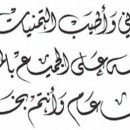 ني وأطيب التمنيات
ه على الجميع بال
عام وأنتم بخ